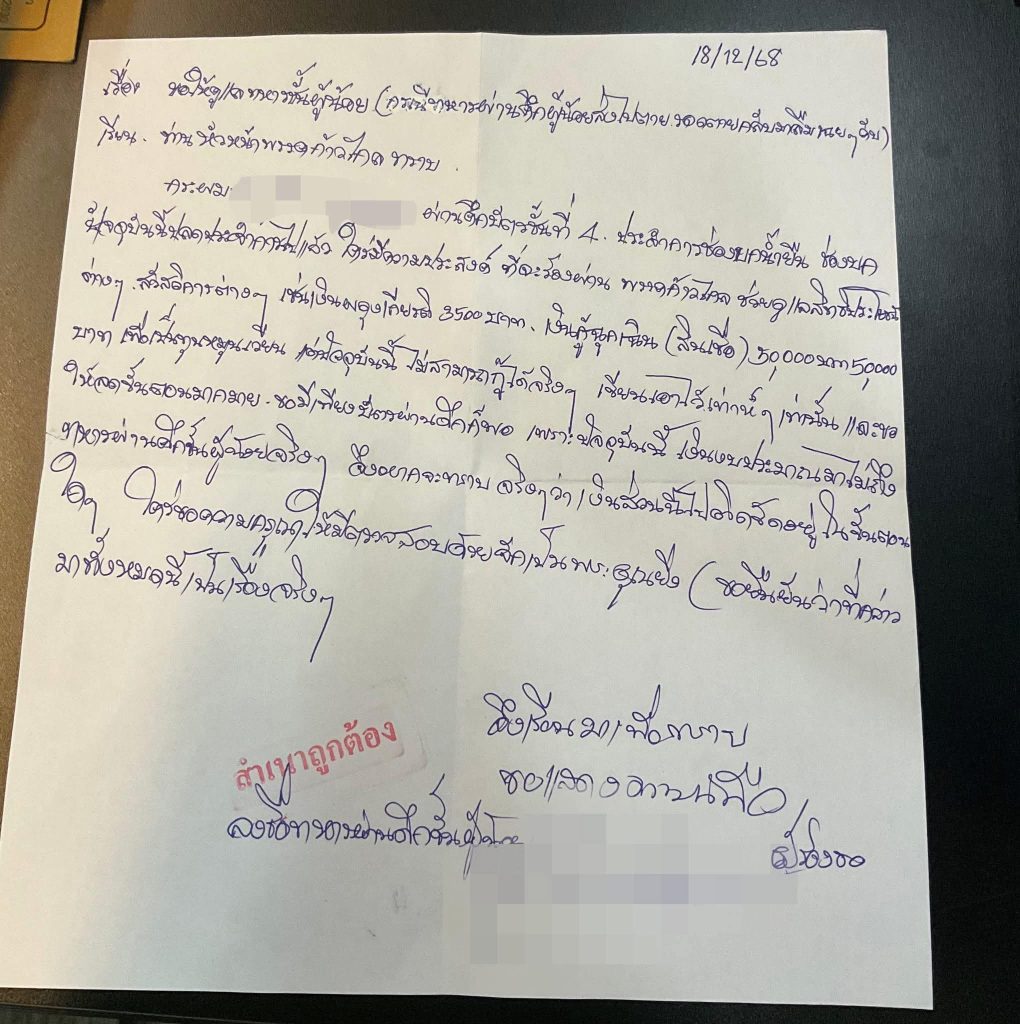 18/12/68
เรื่อง ขอให้ดูแลทหารชั้นผู้น้อย (กรณีทหารผ่านศึกผู้น้อยส่งไปตาย รอดตายกลับมาลืม
เรียน. ท่านหัวหน้าพรรคก้าวไกล ทราบ.
กระผม
ผ่านศึกบัตรชั้นที่ 4. ประจำการช่องบกน้ำยืน ช่องบก
ปัจจุบันนี้ปลดประจำการไปแล้ว ใคร่มีความประสงค์ ที่จะร้องผ่าน พรรคก้าวไกล ช่วยดูแลสิทธิประโยชน์
ต่างๆ. สวัสดิการต่างๆ เช่นเงินผดุงเกียรติ 3500 บาท. เงินกู้ฉุกเฉิน (สินเชื่อ) 50,000 บาท 50,000
บาท เพื่อเป็นทุนหมุนเวียน แต่ปัจจุบันนี้ ไม่สามารถกู้ได้จริงๆ เขียนเอาไว้เท่ห์ๆ เท่านั้น และขอ
ให้ลดขั้นตอนมากมาย. ขอมีเพียงบัตรผ่านศึกก็พอ เพราะปัจจุบันนี้ เงินงบประมาณมาไม่ถึง
ทหารผ่านศึกชั้นผู้น้อยจริงๆ จึงอยากจะทราบ จริงๆว่า เงินส่วนนี้ไปติดขัดอยู่ ในขั้นตอน
ใดๆ ใคร่ขอความกรุณา ให้มีตรวจสอบด้วยจักเป็นพระคุณยิ่ง (ขอยืนยันว่าที่กล่าว
มาทั้งหมดนี้เป็นเรื่องจริงๆ
จึงเรียนมาเพื่อทราบ
ขอแสดงความนับถือ
สำเนาถูกต้อง
ลงชื่อทหารผ่านศึกชั้นผู้น้อย
ผู้ร้องขอ